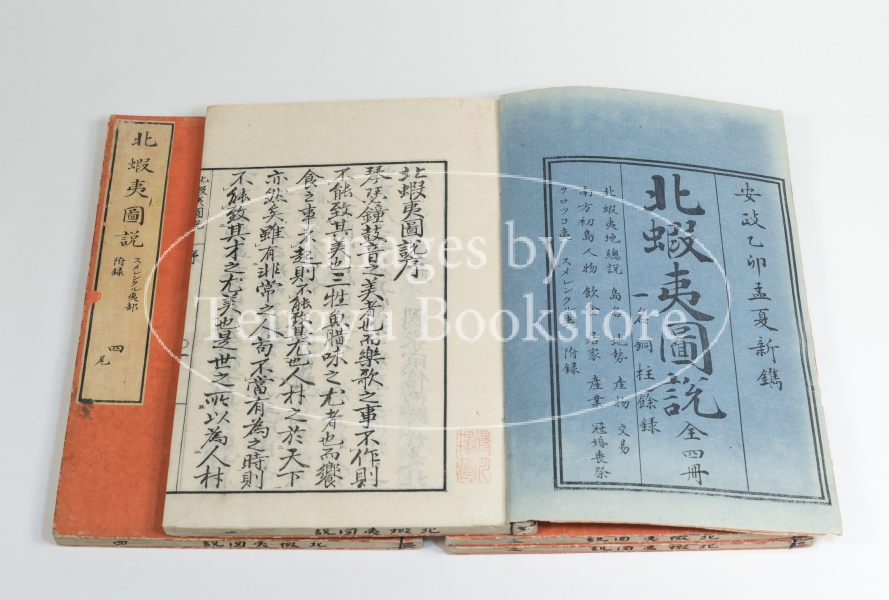 安政乙卯孟夏新鐫
北蝦夷圖説 全四冊
一名銅柱餘録
北蝦夷地總説 島 地勢 産物 交易
南方初島人物 飲食 居家 産業 冠婚喪祭
スメレンクル 附録
北蝦夷圖説序
琴瑟鐘鼓音之美者也而樂歌之事不作則
不能致其美也三牲魚腊味之尤者也而饗
食之事不起則不能致其尤也人材之於天下
亦然矣雖有非常之人苟不當有為之時則
不能致其才之尤美也是世之所以為人材
北蝦夷圖説 序
北蝦夷圖説
スメレンクル夷部
附録
四尾
北蝦夷圖説 一
北蝦夷圖説 四
北蝦夷圖説
北蝦夷圖説
Images by
Tengyu Bookstore